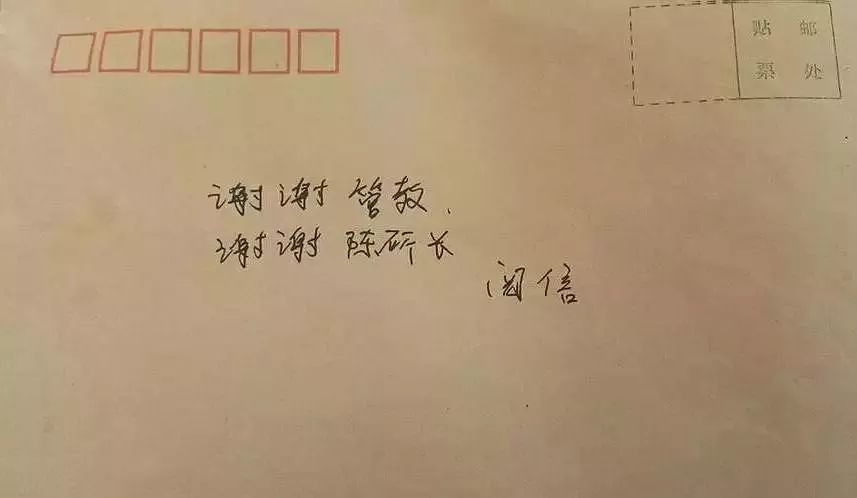 贴 邮
票 处
谢谢管教、
谢谢陈所长
阅信